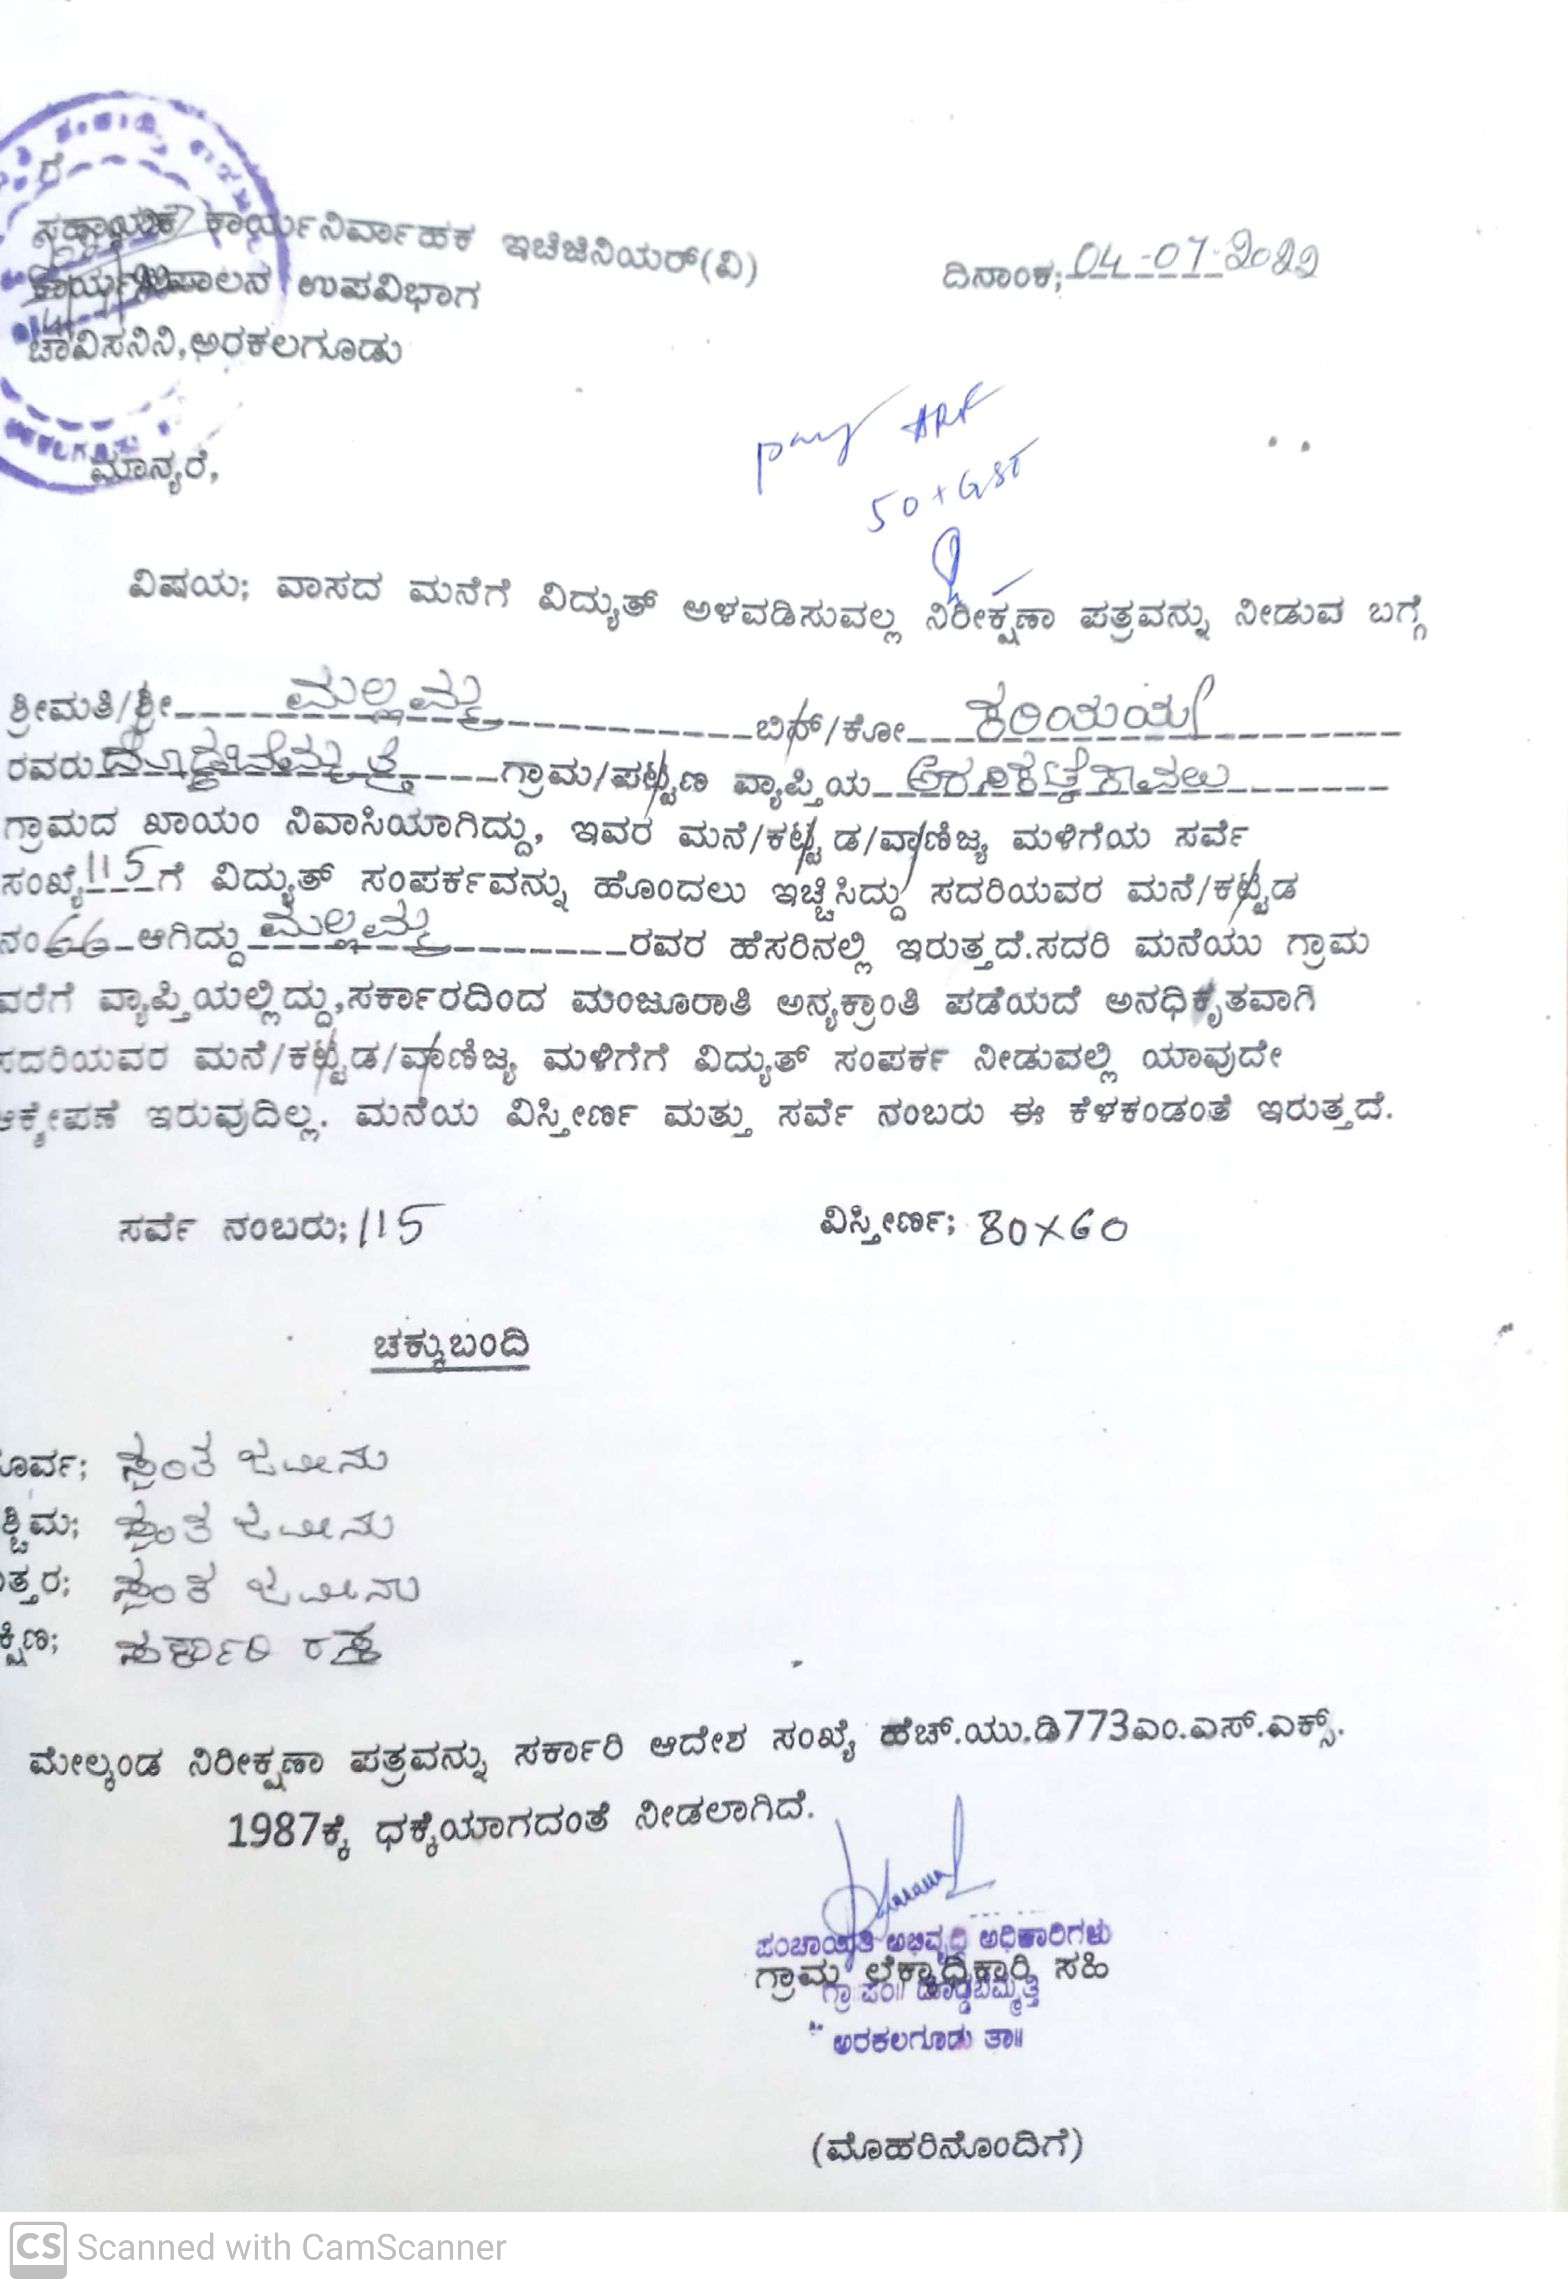 ರೆ
ಸಹಾಯಕ ಕಾರ್ಯನಿರ್ವಾಹಕ ಇಚೆಜಿನಿಯರ್(ವಿ)
ದಿನಾಂಕ; 04-07-2022
ಕಾರ್ಯಪಾಲನ ಉಪವಿಭಾಗ
ಚಾವಿಸನಿನಿ,ಅರಕಲಗೂಡು
pay ARF
50+GST
ಮಾನ್ಯರೆ,
ವಿಷಯ; ವಾಸದ ಮನೆಗೆ ವಿದ್ಯುತ್ ಅಳವಡಿಸುವಲ್ಲ ನಿರೀಕ್ಷಣಾ ಪತ್ರವನ್ನು ನೀಡುವ ಬಗ್ಗೆ
ಶ್ರೀಮತಿ/ಶ್ರೀ ಮಲ್ಲಮ್ಮ ಬಿನ್/ಕೋ ಕರಿಯಯ್ಯ
ರವರು ದೊಡ್ಡಬೆಮ್ಮತ್ತಿ ಗ್ರಾಮ/ಪಟ್ಟಣ ವ್ಯಾಪ್ತಿಯ ಅರಸೀಕಟ್ಟೆಕಾವಲು
ಗ್ರಾಮದ ಖಾಯಂ ನಿವಾಸಿಯಾಗಿದ್ದು, ಇವರ ಮನೆ/ಕಟ್ಟಡ/ವಾಣಿಜ್ಯ ಮಳಿಗೆಯ ಸರ್ವೆ
ಸಂಖ್ಯೆ 115 ಗೆ ವಿದ್ಯುತ್ ಸಂಪರ್ಕವನ್ನು ಹೊಂದಲು ಇಚ್ಚಿಸಿದ್ದು ಸದರಿಯವರ ಮನೆ/ಕಟ್ಟಡ
ನಂ 66 ಆಗಿದ್ದು ಮಲ್ಲಮ್ಮ ರವರ ಹೆಸರಿನಲ್ಲಿ ಇರುತ್ತದೆ.ಸದರಿ ಮನೆಯು ಗ್ರಾಮ
ವರೆಗೆ ವ್ಯಾಪ್ತಿಯಲ್ಲಿದ್ದು,ಸರ್ಕಾರದಿಂದ ಮಂಜೂರಾತಿ ಅನ್ಯಕ್ರಾಂತಿ ಪಡೆಯದೆ ಅನಧಿಕೃತವಾಗಿ
ಸದರಿಯವರ ಮನೆ/ಕಟ್ಟಡ/ವಾಣಿಜ್ಯ ಮಳಿಗೆಗೆ ವಿದ್ಯುತ್ ಸಂಪರ್ಕ ನೀಡುವಲ್ಲಿ ಯಾವುದೇ
ಆಕ್ಶೇಪಣೆ ಇರುವುದಿಲ್ಲ. ಮನೆಯ ವಿಸ್ತೀರ್ಣ ಮತ್ತು ಸರ್ವೆ ನಂಬರು ಈ ಕೆಳಕಂಡಂತೆ ಇರುತ್ತದೆ.
ಸರ್ವೆ ನಂಬರು; 115 ವಿಸ್ತೀರ್ಣ; 80X60
ಚಕ್ಕುಬಂದಿ
ಪೂರ್ವ; ಸ್ವಂತ ಜಮೀನು
ಶ್ಚಿಮ; ಸ್ವಂತ ಜಮೀನು
ತ್ತರ; ಸ್ವಂತ ಜಮೀನು
ಕ್ಷಿಣ; ಸರ್ಕಾರಿ ರಸ್ತೆ
ಮೇಲ್ಕಂಡ ನಿರೀಕ್ಷಣಾ ಪತ್ರವನ್ನು ಸರ್ಕಾರಿ ಆದೇಶ ಸಂಖ್ಯೆ ಹೆಚ್.ಯು.ಡಿ773ಎಂ.ಎಸ್.ಎಕ್ಸ್.
1987ಕ್ಕೆ ಧಕ್ಕೆಯಾಗದಂತೆ ನೀಡಲಾಗಿದೆ.
ಪಂಚಾಯಿತಿ ಅಭಿವೃದ್ಧಿ ಅಧಿಕಾರಿಗಳು
ಗ್ರಾಮ ಲೆಕ್ಕಾಧಿಕಾರಿ ಸಹಿ
ಗ್ರಾ ಪಂ॥ ದೊಡ್ಡಬೆಮ್ಮತ್ತಿ
ಅರಕಲಗೂಡು ತಾ॥
(ಮೊಹರಿನೊಂದಿಗೆ)
CS Scanned with CamScanner